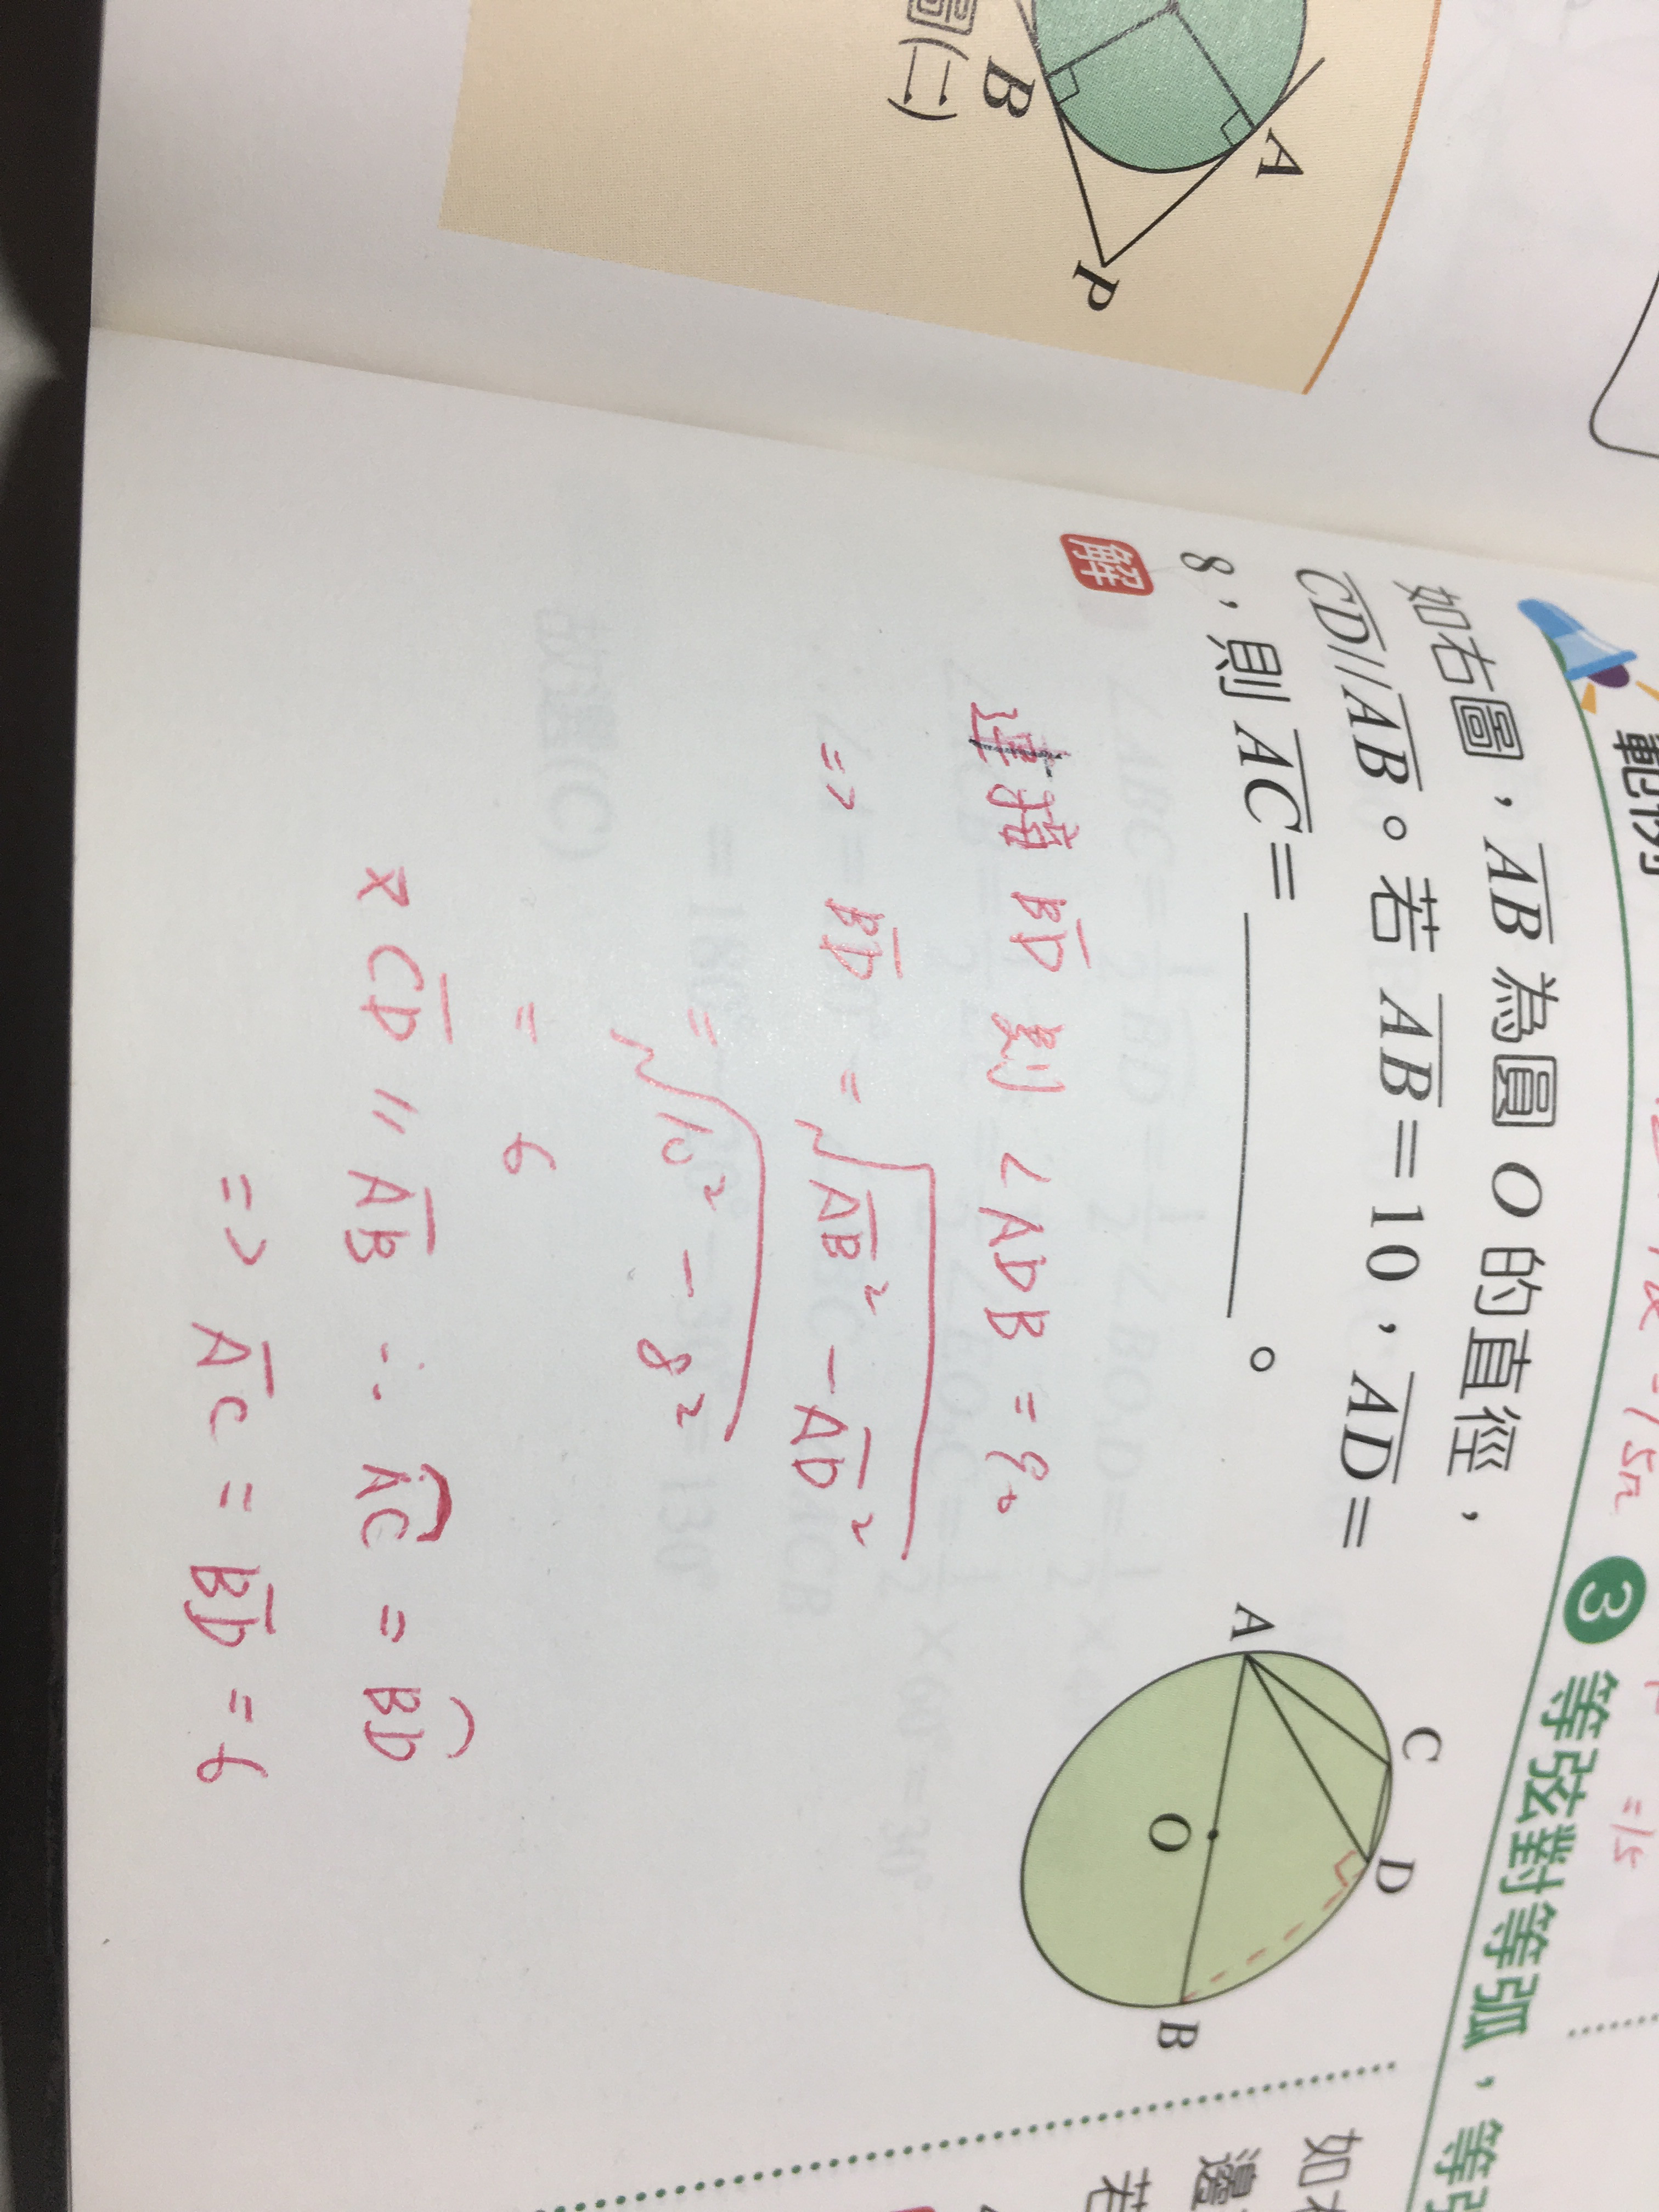 B
A
P
圖(二)
範例
③ 等弦對等弧，
如右圖，AB 為圓 O 的直徑，
CD//AB。若 AB=10，AD=
8，則 AC=＿＿＿＿。
A
C
D
O
B
解
連接 BD 則 ∠ADB = 90
=> BD = √AB² - AD²
= √10² - 8²
= 6
又 CD // AB ∴ AC = BD
=> AC = BD = 6